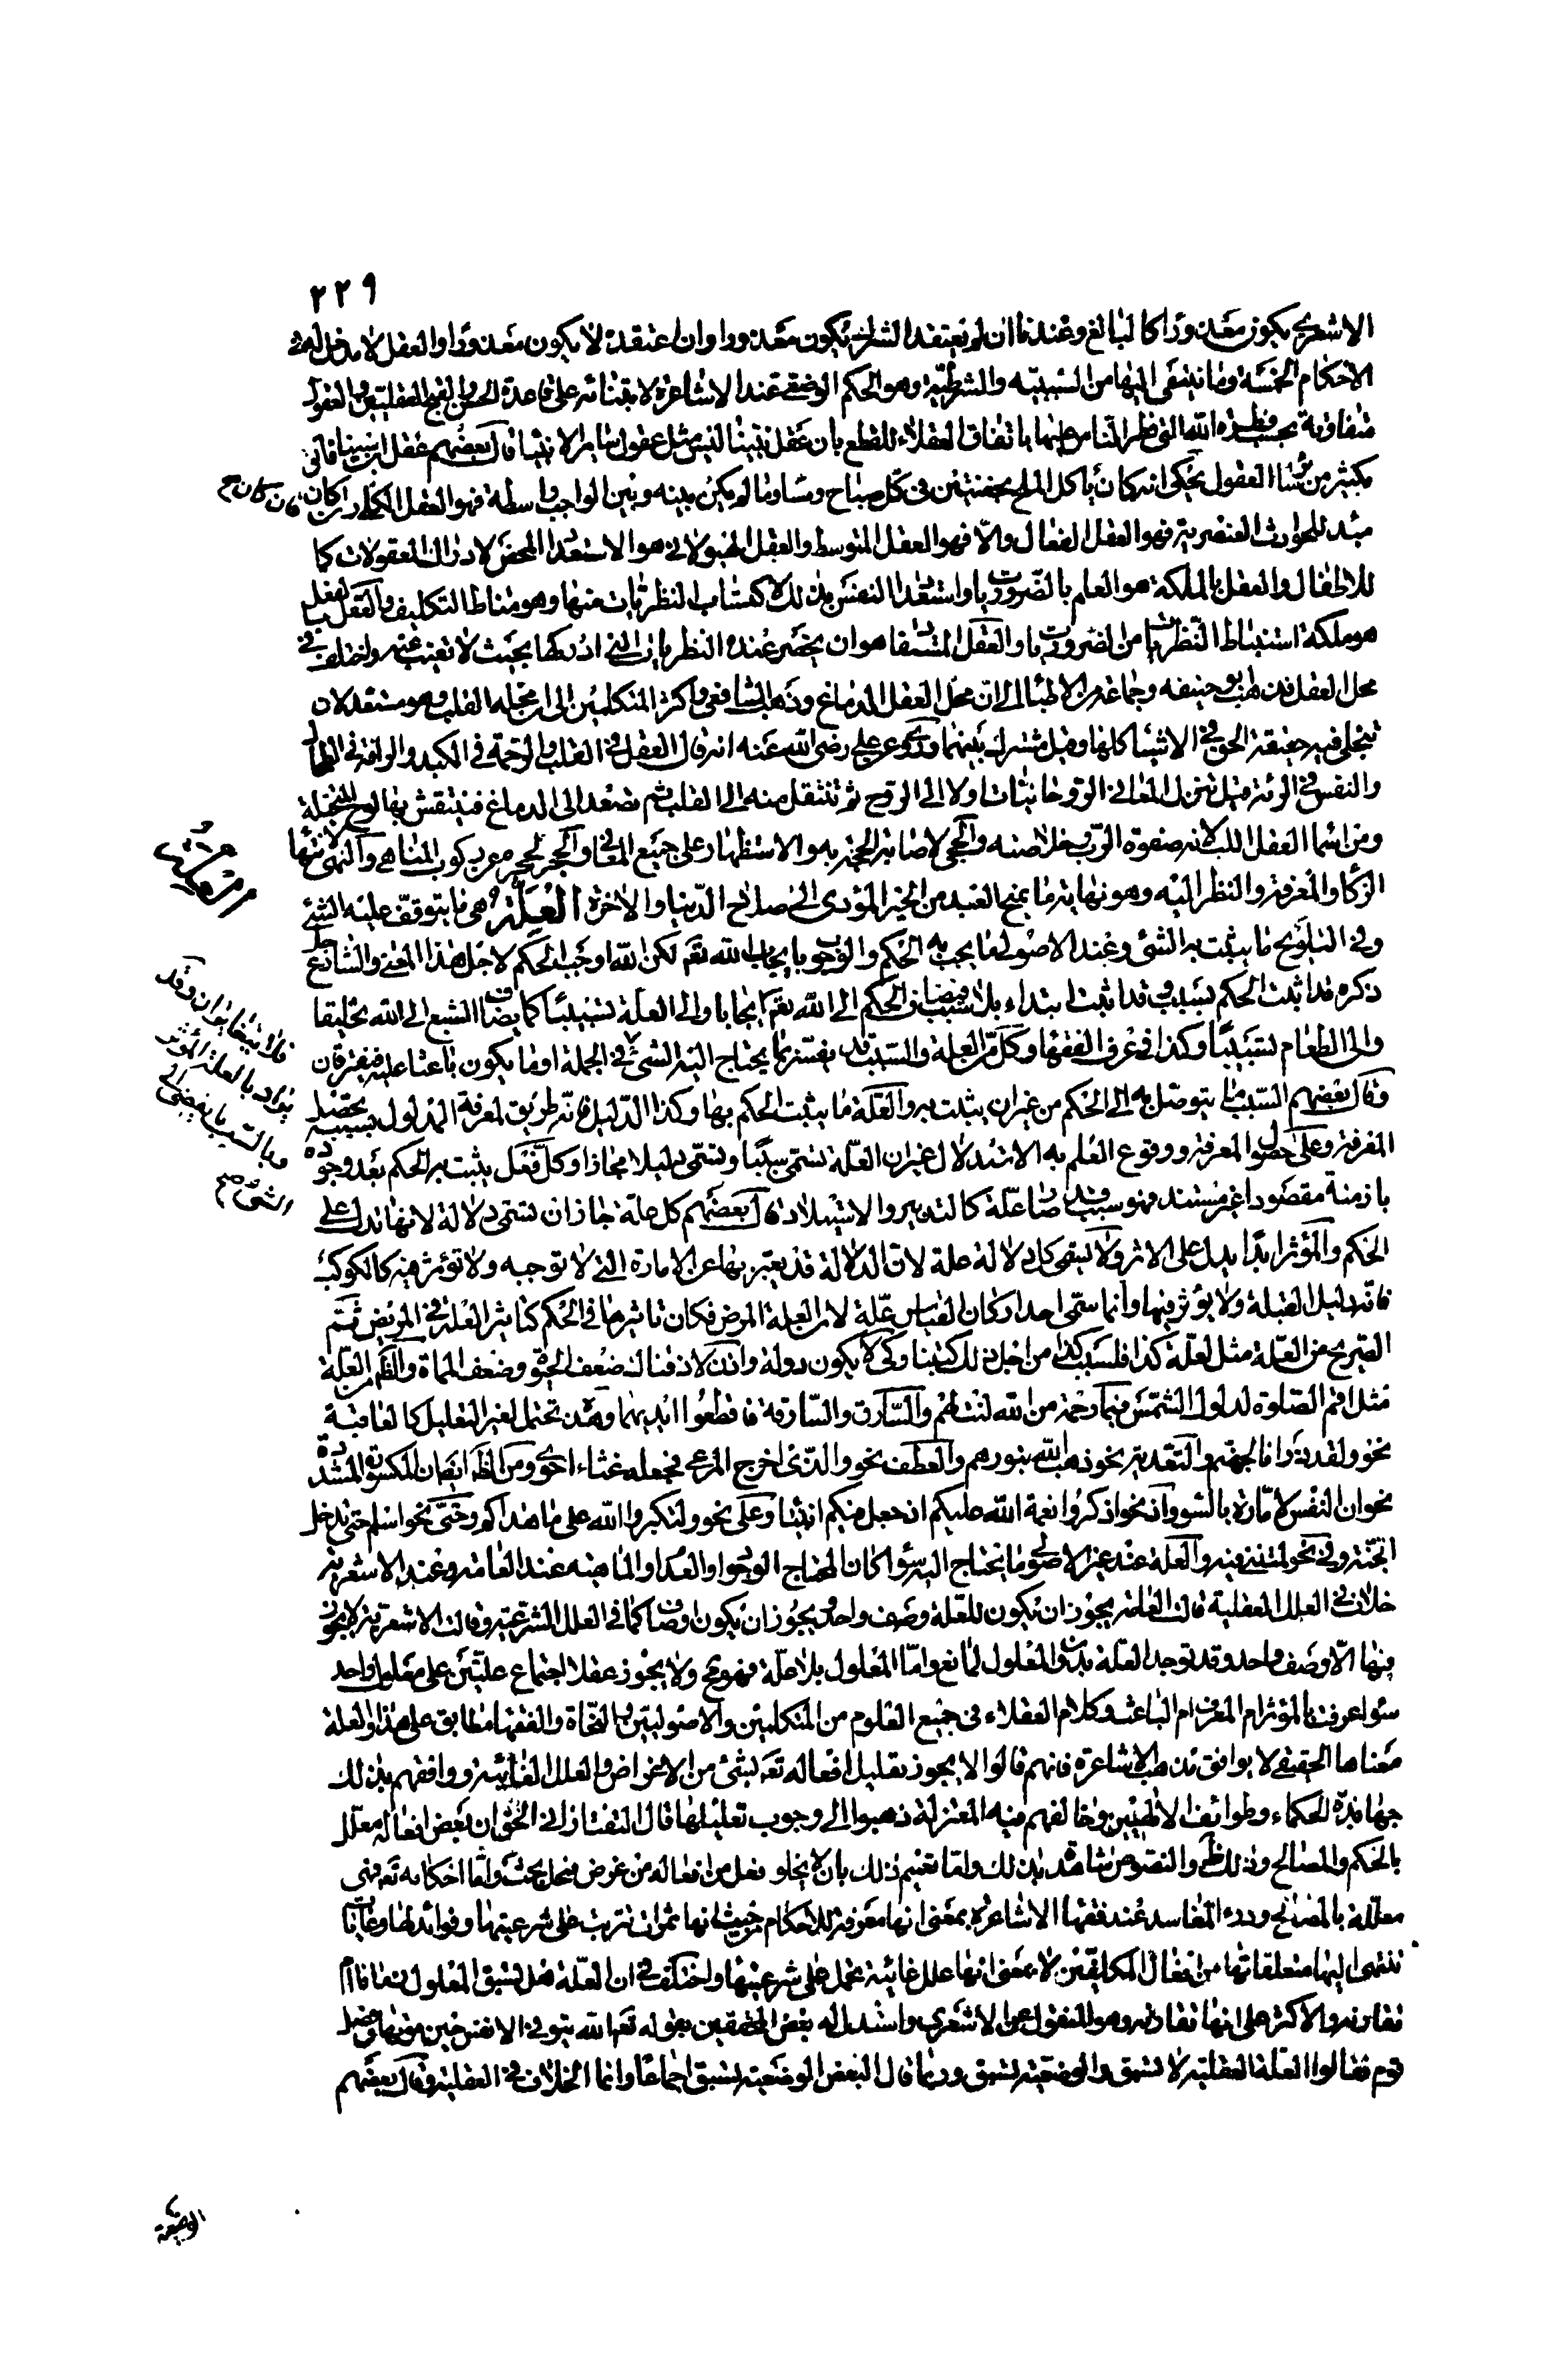 ٢٢٩
الاشعرى يكون معذورا كالبالغ وعندنا ان لم يعتقد الشرك يكون معذورا وان اعتقد لا يكون معذورا والعقل لا مدخل له فى
الاحكام الخمسة وما ينتمى اليها من السببية والشرطية وهو الحكم الوضعى عند الاشاعرة لابتنائه على قاعدة الحسن والقبح العقليين والعقول
متفاوتة بحسب فطرة الله التى فطر الناس عليها باتفاق العقلاء للقطع بان عقل نبينا ليس مثل عقول سائر الانبياء قال بعضهم عقل ابن سينا فائق
بكثير من سائر العقول يحكى انه كان ياكل الملح بحفنتين فى كل صباح ومساء وما لم يكن بينه وبين الواجب واسطة فهو العقل الكلى وان كان
مبدء للحوادث العنصرية فهو العقل الفعال والا فهو العقل المتوسط والعقل الهيولانى هو الاستعداد المحض لادراك المعقولات كما
للاطفال والعقل بالملكة هو العلم بالضروريات واستعداد النفس بذلك لاكتساب النظريات منها وهو مناط التكليف والعقل بالفعل
هو ملكة استنباط النظريات من الضروريات والعقل المستفاد هو ان يحضر عنده النظريات التى ادركها بحيث لا تغيب عنه واختلف فى
محل العقل فذهب ابو حنيفه وجماعة من الاطباء الى ان محل العقل الدماغ وذهب الشافعى واكثر المتكلمين الى ان محله القلب وهو مستعد لان
تنجلى فيه حقيقة الحق فى الاشياء كلها وقيل مشترك بينهما وروى عن على رضى الله عنه انه قال العقل فى القلب والرحمة فى الكبد والرافة فى الطحال
والنفس فى الرئة قيل تنزل المعانى الروحانيات اولا الى الروح ثم تنتقل منه الى القلب ثم تصعد الى الدماغ فينتقش بها لوح المتخيلة
ومن اسماء العقل اللب لانه صفوة الرب وخلاصته والحجى لاصابة الحجة به والاستظهار على جميع المعانى والحجر لحجره عن ركوب المناهى والنهى لانتهاء
الذكاء والمعرفة والنظر اليه وهو نهاية ما يمنح العبد من الخير المؤدى الى صلاح الدنيا والاخرة العلة هى ما يتوقف عليه الشئ
وفى التلويح ما يثبت به الشئ وعند الاصولى ما يجب به الحكم والوجوب بايجاب الله تعم لكن الله اوجب الحكم لاجل هذا المعنى والشارع جل
ذكره قد اثبت الحكم بسبب وقد اثبت ابتداء بلا سبب فيضاف الحكم الى الله تعم ايجابا والى العلة تسبيبا كما يضاف الشبع الى الله تخليقا
والى الطعام تسبيبا وكذا فى عرف الفقهاء وكل من العلة والسبب قد يفسر بما يحتاج اليه الشئ فى الجملة او ما يكون باعثا عليه فيفترقان
وقال بعضهم السبب ما يتوصل به الى الحكم من غير ان يثبت به والعلة ما يثبت الحكم بها وكذا الدليل فانه طريق لمعرفة المدلول بسببه يحصل
المعرفة وعلى حصول المعرفة ووقوع العلم به الاستدلال غير ان العلة تسمى سببا وتسمى دليلا مجازا وكل فعل يثبت به الحكم بعد وجوده
بازمنة مقصودا غير مستند فهو سبب قد صار علة كالتدبير والاستيلاد قال بعضهم كل علة جاز ان تسمى دلالة لانها تدل على
الحكم والمؤثر ابدا يدل على الاثر ولا يسمى كل دلالة علة لان الدلالة قد يعبر بها عن الامارة التى لا توجبه ولا تؤثر فيه كالكوكب
فانه دليل القبلة ولا يؤثر فيها وانما سمى احد اركان القياس علة لان العلة المرض فكان تاثيرها فى الحكم كتاثير العلة فى المريض ثم
الصريح من العلة مثل لعلة كذا فلسبب كذا من اجل ذلك كتبنا وكى لا يكون دولة واذن لاذقناك ضعف الحيوة وضعف الممات والظاهر من العلة
مثل اقم الصلوة لدلوك الشمس فبما رحمة من الله لنت لهم والسارق والسارقة فاقطعوا ايديهما وقد تحتمل لغير التعليل كالعاقبة
نحو ولقد ذرانا لجهنم والتعدية نحو ذهب الله بنورهم والعطف نحو والذى اخرج المرعى فجعله غثاء احوى ومن الظاهر ايضا ان المكسورة المشددة
نحو ان النفس لامارة بالسوء واذ نحو اذكروا نعمة الله عليكم اذ جعل فيكم انبياء وعلى نحو ولتكبروا الله على ما هداكم وحتى نحو اسلم حتى تدخل
الجنة وفى نحو لمتننى فيه والعلة عند غير الاصولى ما يحتاج اليه سواء كان المحتاج الوجود او العدم او الماهية وعند العامة وعند الاشعرية
خلاف فى العلل العقلية قالت العامة يجوز ان يكون للعلة وصف واحد ويجوز ان يكون اوصاف كما فى العلل الشرعية وقالت الاشعرية لا يجوز
فيها الا وصف واحد وقد توجد العلة بدون المعلول لمانع واما المعلول بلا علة فهو مح ولا يجوز عقلا اجتماع علتين على معلول واحد
سواء عرفت بالمؤثر ام المعرف ام الباعث وكلام العقلاء فى جميع العلوم من المتكلمين والاصوليين والنحاة والفقهاء مطابق على هذا والعلة
معناها الحقيقى لا يوافق مذهب الاشاعرة فانهم قالوا لا يجوز تعليل افعاله تعم بشئ من الاغراض والعلل الغائية ووافقهم بذلك
جهابذة الحكماء وطوائف الالهيين وخالفهم فيه المعتزلة ذهبوا الى وجوب تعليلها قال التفتازانى الحق ان بعض افعاله معلل
بالحكم والمصالح وذلك ظ والنصوص شاهدة بذلك واما تعميم ذلك بان لا يخلو فعل من افعاله من غرض فمحل بحث واما احكامه تعم فهى
معللة بالمصالح ودرء المفاسد عند فقهاء الاشاعرة بمعنى انها معرفة للاحكام من حيث انها ثمرات تترتب على شرعيتها وفوائد لها وغايات
تنتهى اليها متعلقاتها من افعال المكلفين لا بمعنى انها علل غائية تحمل على شرعيتها واختلف فى ان العلة هل تسبق المعلول زمانا ام
تقارنه والاكثر على انها تقارنه وهو المنقول عن الاشعرى واستدل له بعض المحققين بقوله تعم الله يتوفى الانفس حين موتها وفصل
قوم فقالوا العلة العقلية لا تسبق والوضعية تسبق وربما قال البعض الوضعية تسبق اجماعا وانما الخلاف فى العقلية وقال بعضهم
فان كان صح
فلا يتغايران وقد
يراد بالعلة المؤثر
وبالسبب ما يفضى الى
الشئ صح
الوضعية